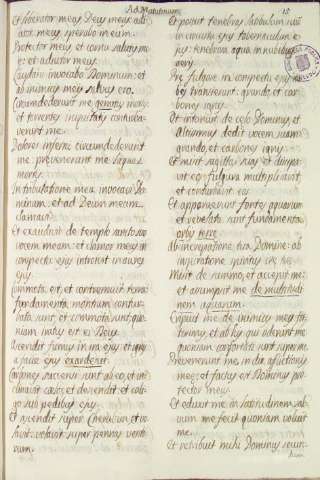 Ad Matutinum. 15
et liberator meus Deus meus adi-
utor meus sperabo in eum.
Protector meus et cornu salutis me-
e: et adiutor meus.
Laudans invocabo Dominum: et
ab inimicis meis salvus ero.
Circumdederunt me gemitus mortis:
et torrentes iniquitatis conturba-
verunt me.
Dolores inferni circumdederunt
me prevenerunt me laquei
mortis.
In tribulatione mea invocavi Do-
minum: et ad Deum meum
clamavi.
Et exaudivit de templo sancto suo
vocem meam: et clamor meus in
conspectu eius introivit in aures
eius.
Commota est, et contremuit terra:
fundamenta montium contur-
bata sunt, et commota sunt quo-
niam iratus est eis Deus.
Ascendit fumus in ira eius: et ignis
a facie eius exardescet:
Carbones succensi sunt ab eo, et in-
clinavit caelos et descendit et cali-
go sub pedibus eius.
Et ascendit super Cherubim, et vo-
lavit: volavit super pennas vento-
rum.
Et posuit tenebras latibulum suum
in circuitu eius tabernaculum e-
ius: tenebrosa aqua in nubibus
aeris.
Pre fulgore in conspectu eius nu-
bes transierunt: grando et car-
bones ignis.
Et intonuit de celo Dominus, et
Altissimus dedit vocem suam:
grando, et carbones ignis.
Et misit sagittas suas et dissipa-
vit eos: fulgura multiplicavit,
et conturbavit eos.
Et apparuerunt fontes aquarum
et revelata sunt fundamenta
orbis terre.
Ab increpatione tua Domine: ab
inspiratione spiritus ire tue.
Misit de summo, et accepit me:
et assumpsit me de multitudi-
nem aquarum.
Eripuit me de inimicis meis for-
tissimis, et ab his qui oderunt me
quoniam confortati sunt super me.
Prevenerunt me in die afflictionis
mee: et factus est Dominus pro-
tector meus.
Et eduxit me in latitudinem sal-
vum me fecit quoniam voluit
me.
Et retribuet mihi Dominus secun-
dum